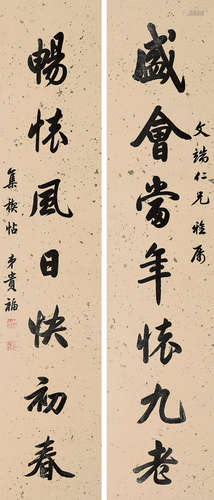 文瑞仁兄雅属
盛會當年懷九老
暢懷風日快初春
集禊帖
弟貴福